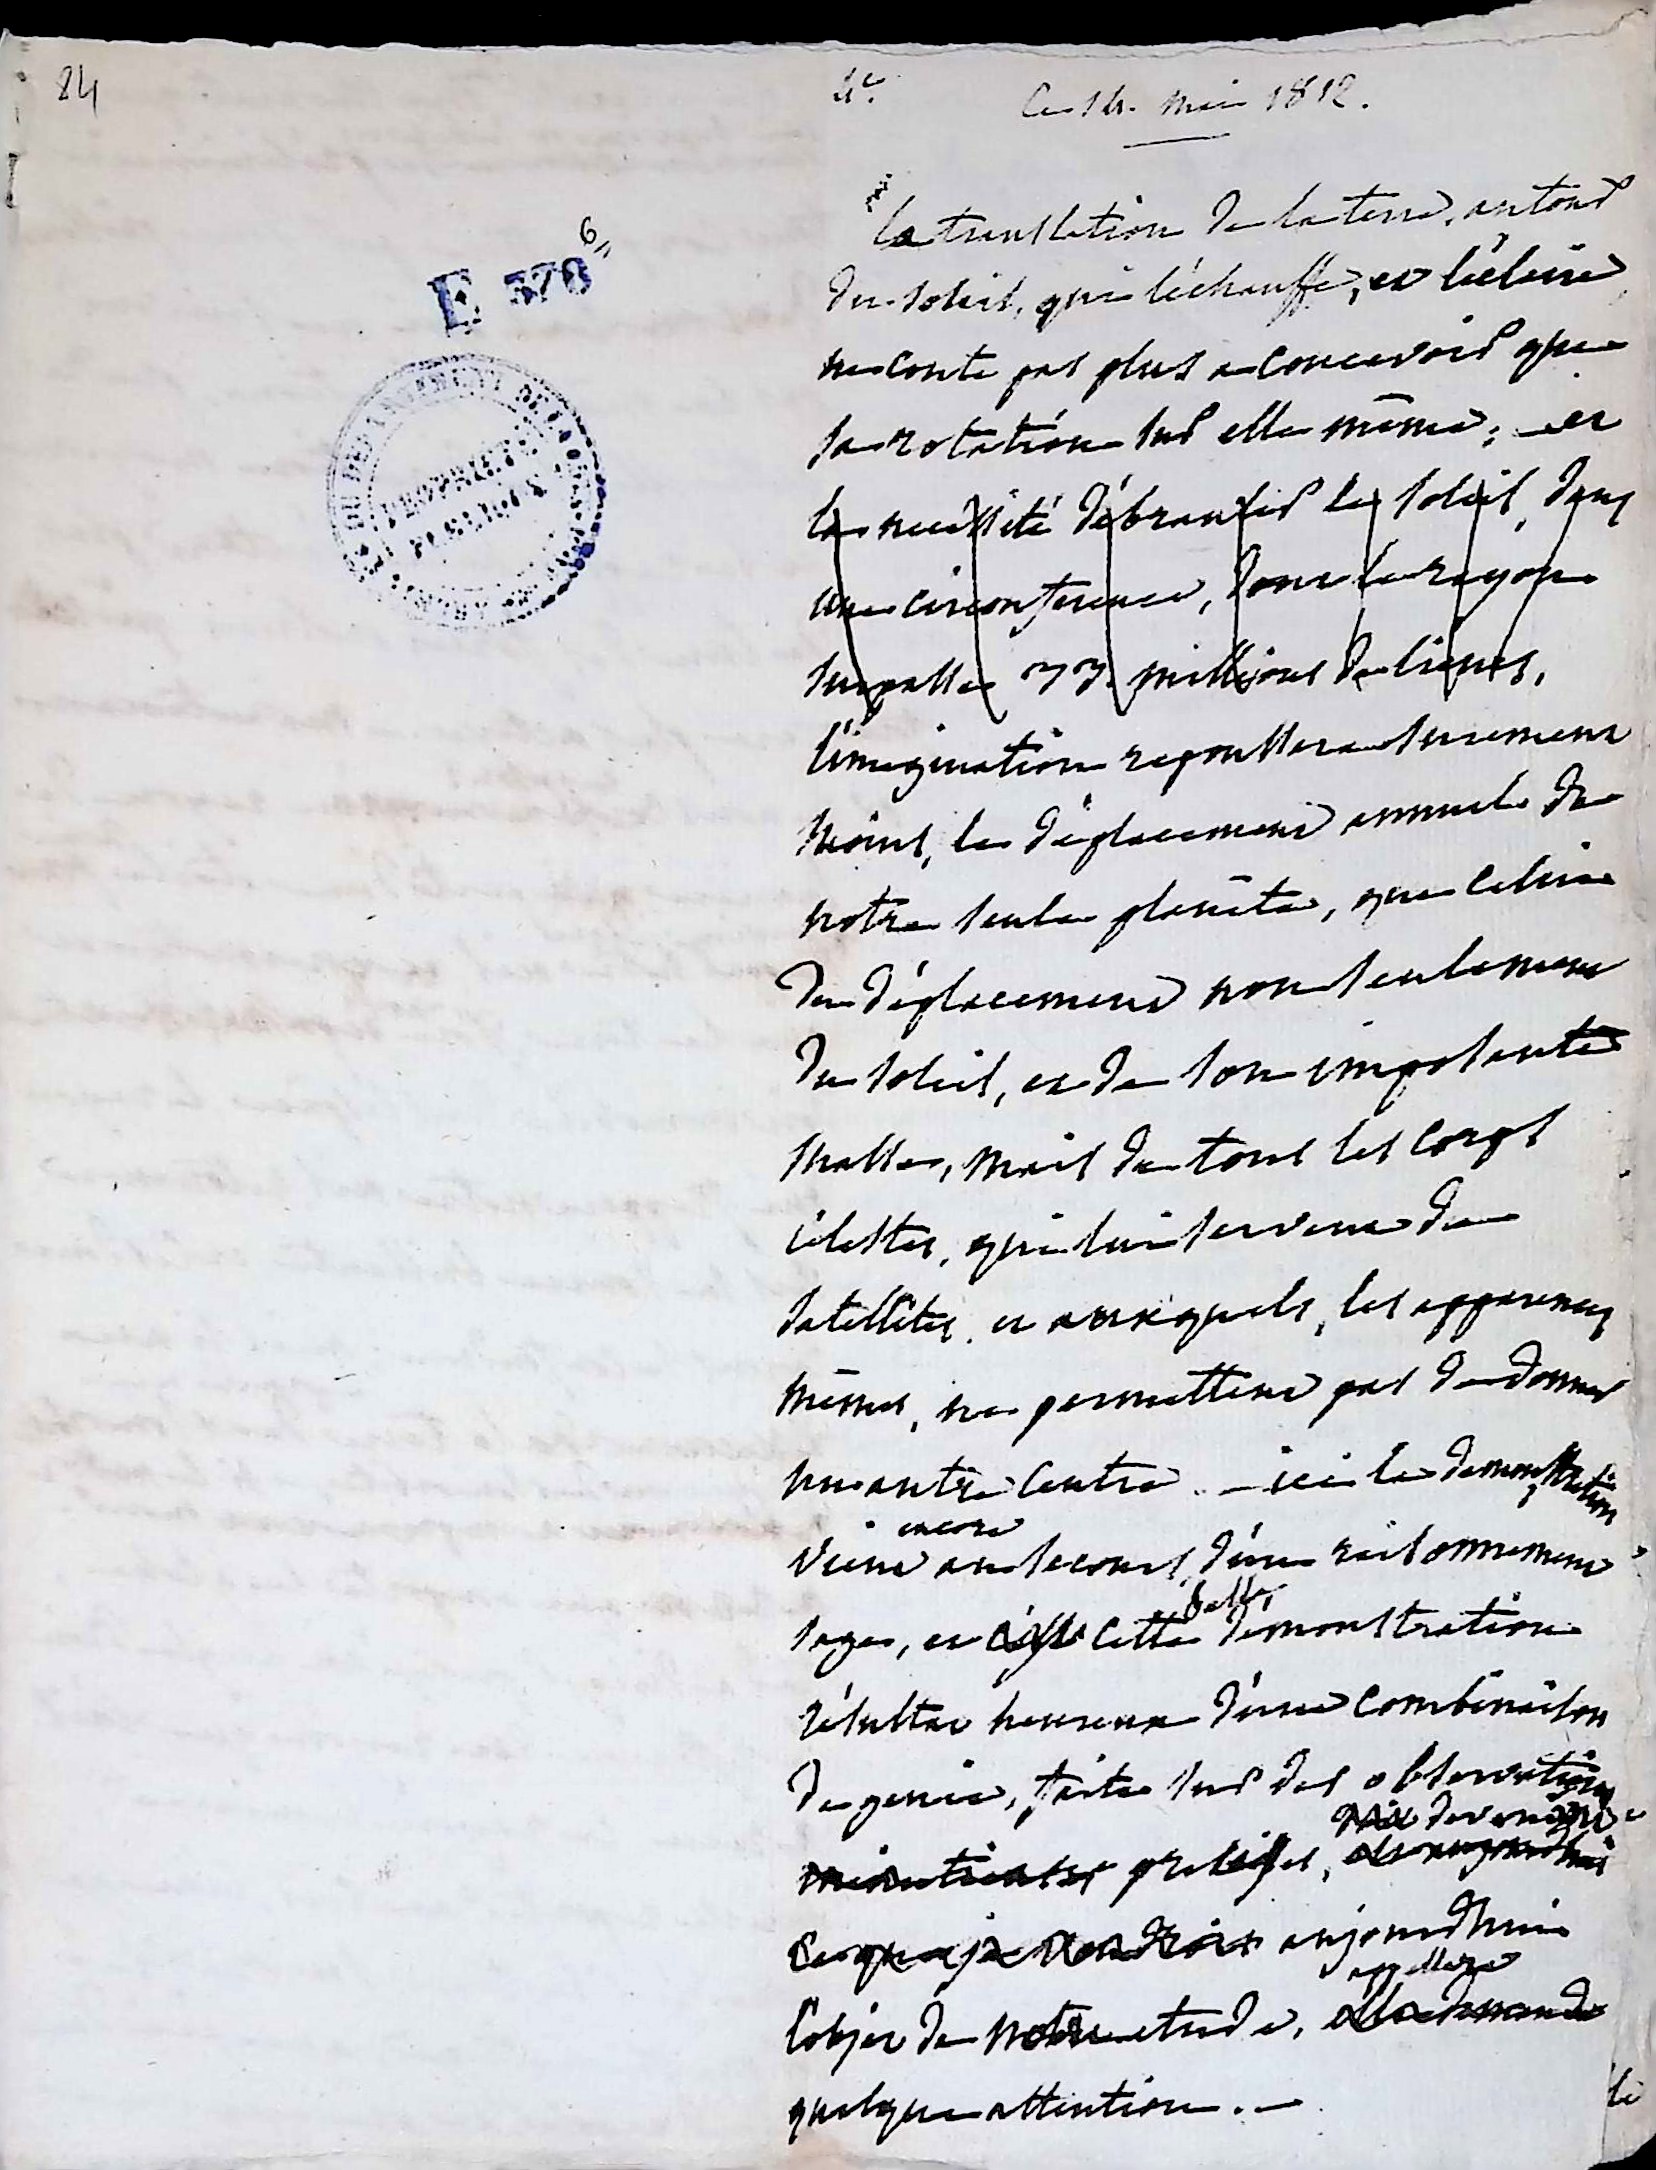 84
4e.
Ce 14. mai 1812.
E 378
6
PROPRIÉTÉ
PUBLIQUE
la translation de la terre, autour
du soleil, qui l'échauffe, et l'éclaire
ne coute pas plus a concevoir que
sa rotation sur elle même; et
la necessité d'ébranler le soleil, dans
une circonference, dont le rayon
surpasse 33. millions de lieues,
l'imagination repoussera surement
moins, le déplacement annuel de
notre seule planète, que celui
du déplacement non seulement
du soleil, et de son imposante
masse, mais de tous les corps
célestes, qui lui servent de
satellites, et auxquels, les apparences
mêmes, ne permettent pas de donner
un autre centre. — ici la demonstration
encore
vient au secours, d'un raisonnement
belle
sage, et cette démonstration
résultat heureux d'une combinaison
de genie, faite sur des observations
devenir
minutieuses précises,
ce que je voudrais aujourdhui
appellera
l'objet de notre etude, demande
quelque attention. —